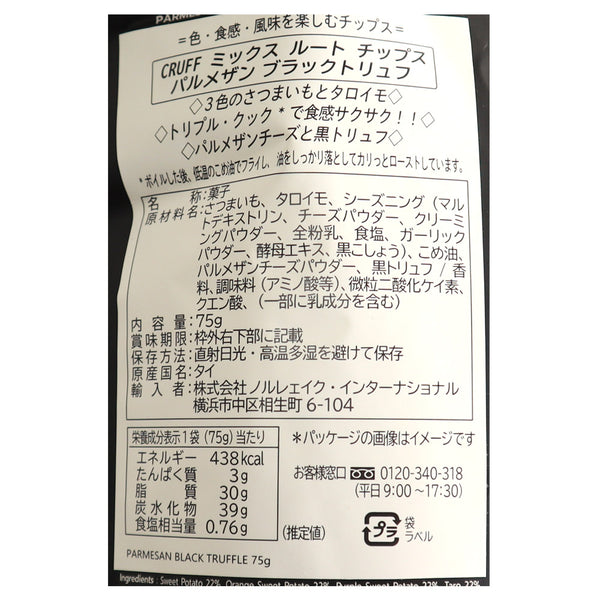 PARMESAN
=色・食感・風味を楽しむチップス=
CRUFF ミックス ルート チップス
パルメザン ブラックトリュフ
◇3色のさつまいもとタロイモ◇
◇トリプル・クック*で食感サクサク!!◇
◇パルメザンチーズと黒トリュフ◇
*ボイルした後、低温のこめ油でフライし、油をしっかり落としてカリっとローストしています。
名称:菓子
原材料名:さつまいも、タロイモ、シーズニング (マル
トデキストリン、チーズパウダー、クリーミ
ングパウダー、全粉乳、食塩、ガーリック
パウダー、酵母エキス、黒こしょう)、こめ油、
パルメザンチーズパウダー、黒トリュフ / 香
料、調味料 (アミノ酸等)、微粒二酸化ケイ素、
クエン酸、(一部に乳成分を含む)
内容量:75g
賞味期限:枠外右下部に記載
保存方法:直射日光・高温多湿を避けて保存
原産国名:タイ
輸入者:株式会社ノルレェイク・インターナショナル
横浜市中区相生町 6-104
栄養成分表示1袋 (75g) 当たり
エネルギー 438kcal
たんぱく質 3g
脂質 30g
炭水化物 39g
食塩相当量 0.76g (推定値)
*パッケージの画像はイメージです
お客様窓口 0120-340-318
(平日 9:00 〜 17:30)
プラ
袋
ラベル
PARMESAN BLACK TRUFFLE 75g
Ingredients : Sweet Potato 22%, Orange Sweet Potato 22%, Purple Sweet Potato 22%, Taro 22%